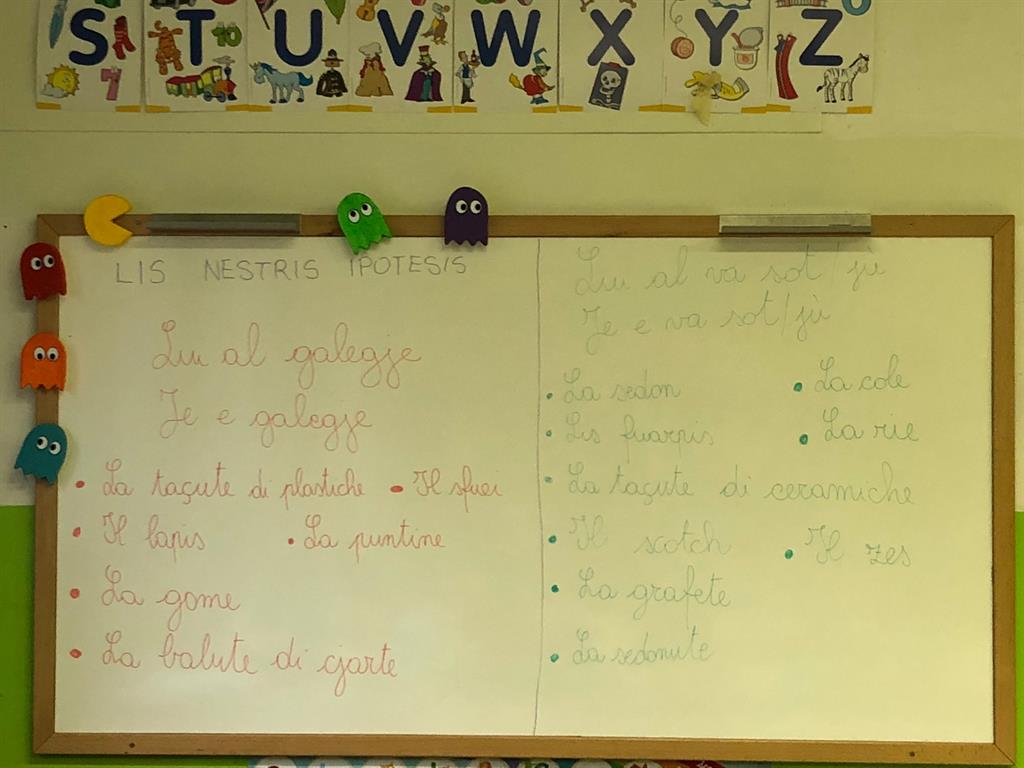 S T U V W X Y Z
LIS NESTRIS IPOTESIS
Lui al galegje
Je e galegje
• La taçute di plastiche • Il sfuei
• Il lapis • La puntine
• La gome
• La balute di cjarte
Lui al va sot/jù
Je e va sot/jù
• La sedon • La cole
• Lis fuarpis • La rie
• La taçute di ceramiche
• Il scotch • Il zes
• La grafete
• La sedonute